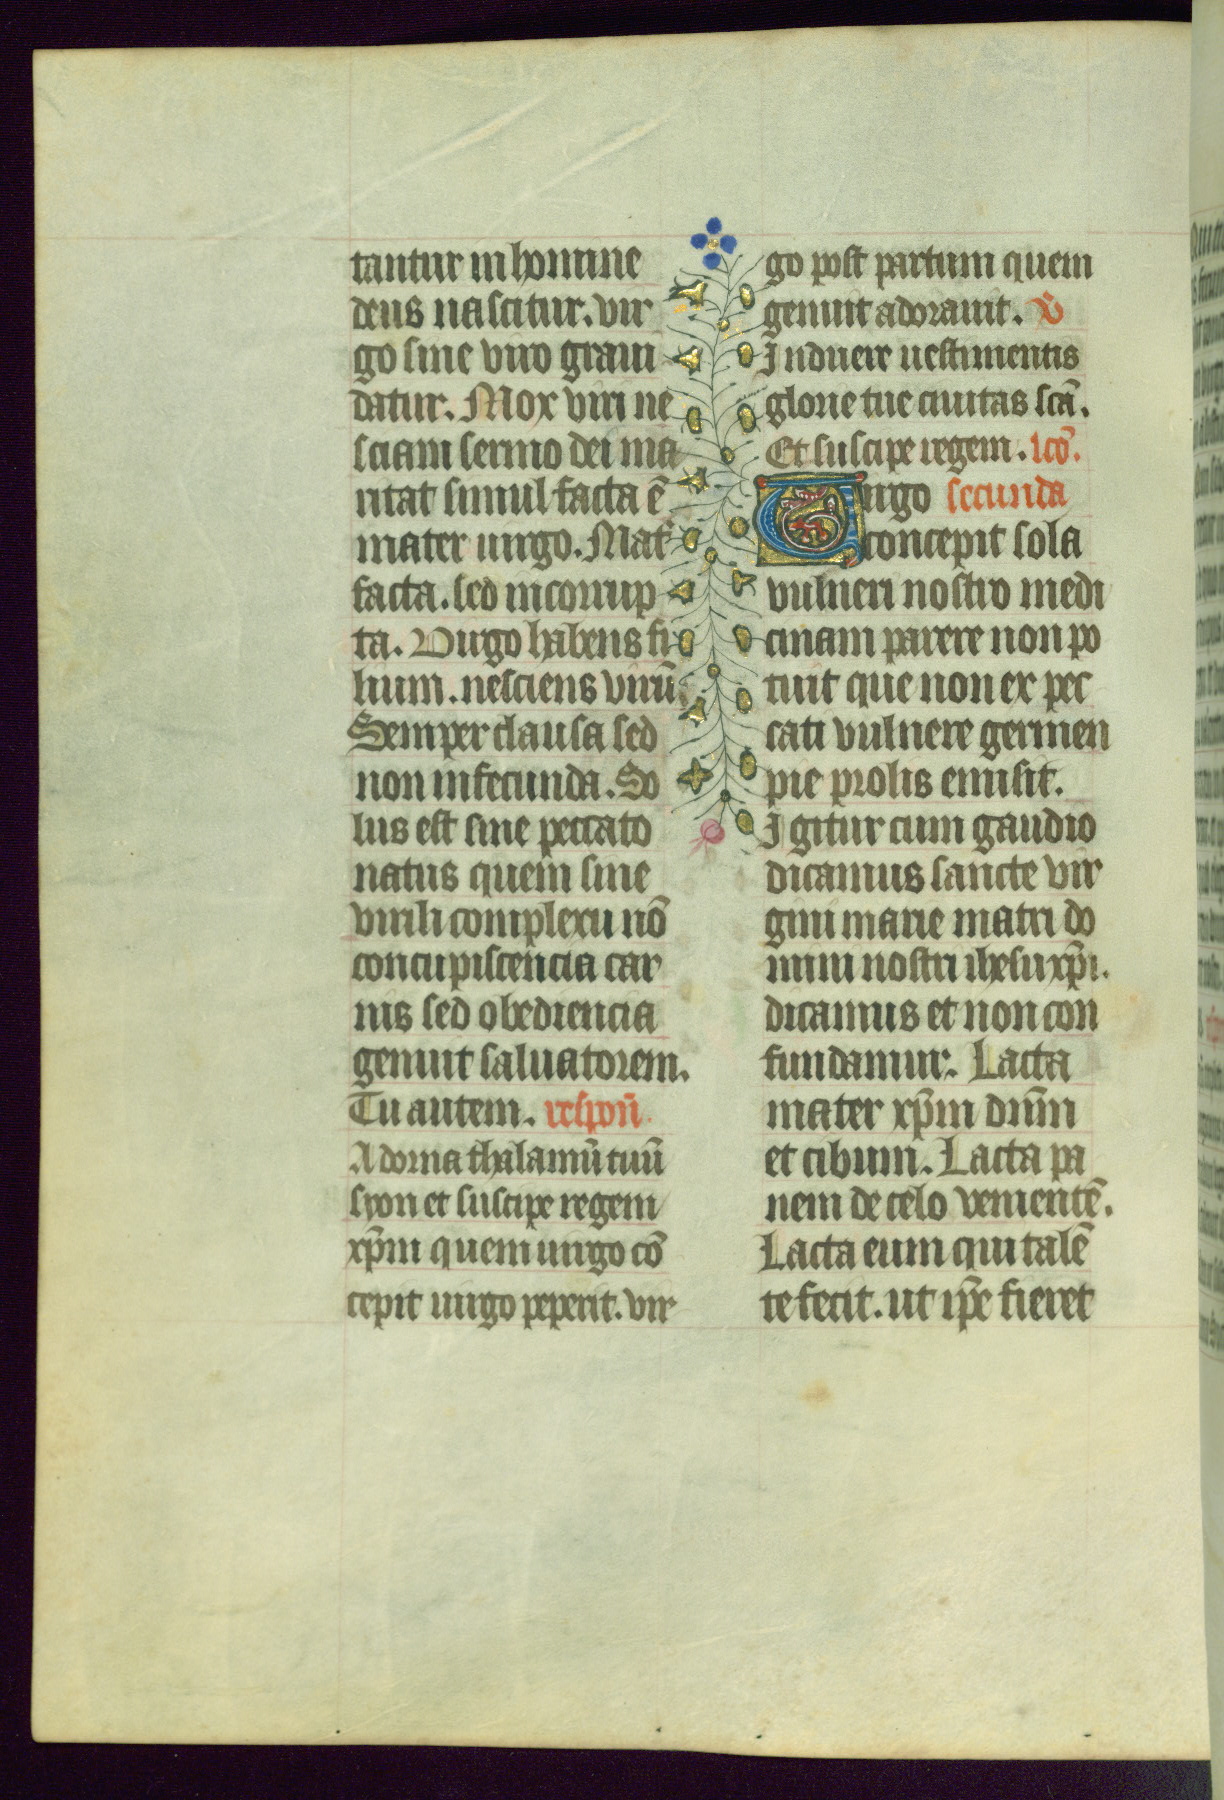 tantur in homine
deus nascitur. vir
go sine viro graui
datur. Mox viri ne
sciam sermo dei ma
ritat simul facta ē
mater uirgo. Mat̄
facta. sed incorrup
ta. Uirgo habens fi
lium. nesciens virū.
Semper clausa sed
non infecunda. So
lus est sine peccato
natus quem sine
virili complexu nō
concupiscencia car
nis sed obediencia
genuit saluatorem.
Tu autem. respoñ.
Adorna thalamū tuū
syon et suscipe regem
xp̄m quem uirgo cō
cepit uirgo peperit. vir
go post partum quem
genuit adorauit. v̄
Induere uestimentis
glorie tue ciuitas scā.
Et suscipe regem. lcō.
Uirgo secunda
concepit sola
vulneri nostro medi
cinam parere non po
tuit que non ex pec
cati vulnere germen
pie prolis emisit.
Igitur cum gaudio
dicamus sancte vir
gini marie matri do
mini nostri ihesu xp̄i.
dicamus et non con
fundamur. Lacta
mater xp̄m dn̄m
et cibum. Lacta pa
nem de celo venientē.
Lacta eum qui talē
te fecit. ut ip̄e fieret